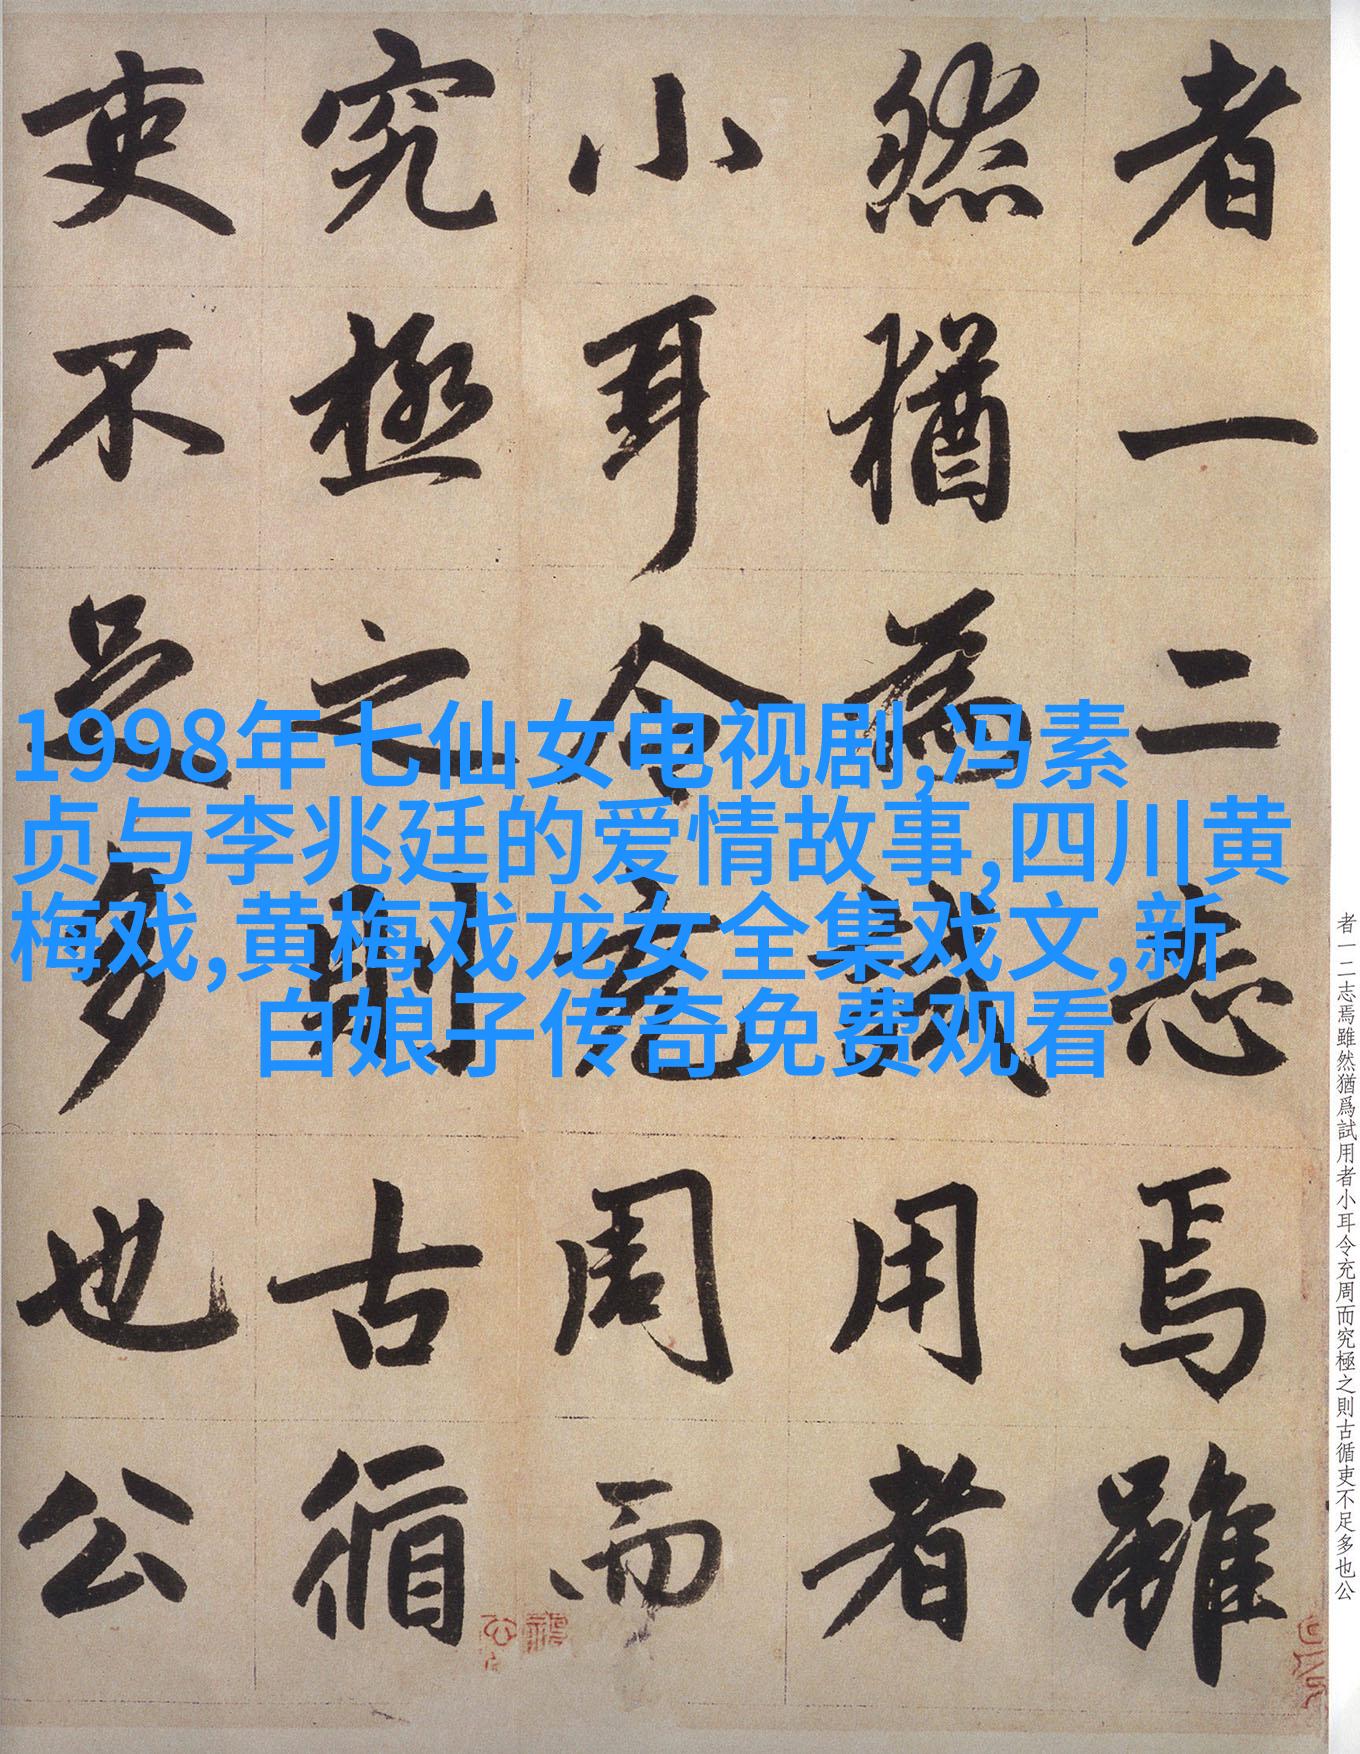 者一二志焉雖
然猶為試用者
小耳令充周而
究極之則古循
吏不足多也公
1998年七仙女电视剧,冯素
贞与李兆廷的爱情故事,四川黄
梅戏,黄梅戏龙女全集戏文,新
白娘子传奇免费观看
者一二志焉雖然猶爲試用者小耳令充周而究極之則古循吏不足多也公